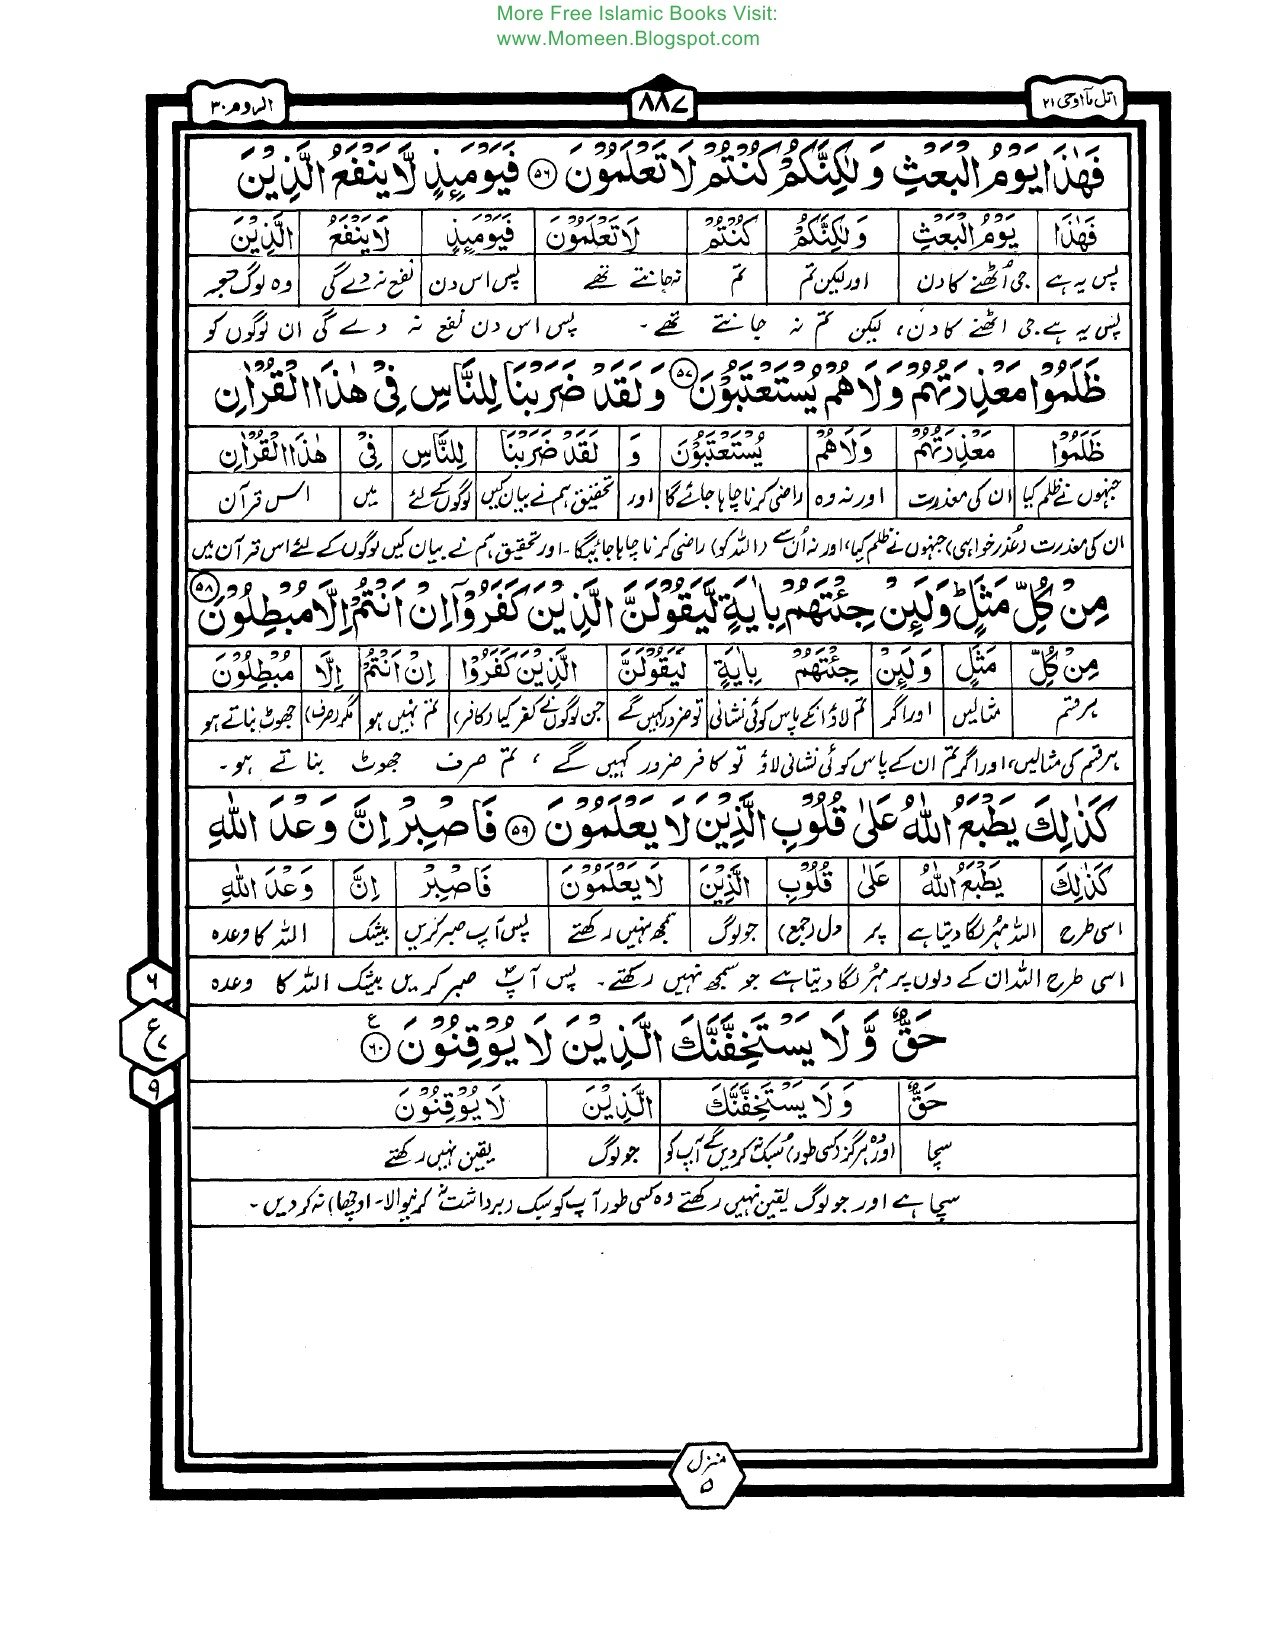 More Free Islamic Books Visit:
www.Momeen.Blogspot.com
اتل مآ اوحی ۲۱ ۸۸۷ الروم ۳۰
فَهٰذَا يَوْمُ الْبَعْثِ وَلٰكِنَّكُمْ كُنْتُمْ لَا تَعْلَمُوْنَ ۵۶ فَيَوْمَىِٕذٍ لَّا يَنْفَعُ الَّذِيْنَ
فَهٰذَا يَوْمُ الْبَعْثِ وَلٰكِنَّكُمْ كُنْتُمْ لَا تَعْلَمُوْنَ فَيَوْمَىِٕذٍ لَا يَنْفَعُ الَّذِيْنَ
پس یہ ہے جی اُٹھنے کا دن اور لیکن تم تم نہ جانتے تھے پس اس دن نفع نہ دے گی وہ لوگ جو
پس یہ ہے جی اٹھنے کا دن، لیکن تم نہ جانتے تھے۔ پس اس دن نفع نہ دے گی ان لوگوں کو
ظَلَمُوْا مَعْذِرَتُهُمْ وَلَا هُمْ يُسْتَعْتَبُوْنَ ۵۷ وَلَقَدْ ضَرَبْنَا لِلنَّاسِ فِيْ هٰذَا الْقُرْاٰنِ
ظَلَمُوْا مَعْذِرَتُهُمْ وَلَا هُمْ يُسْتَعْتَبُوْنَ وَ لَقَدْ ضَرَبْنَا لِلنَّاسِ فِيْ هٰذَا الْقُرْاٰنِ
جنہوں نے ظلم کیا ان کی معذرت اور نہ وہ راضی کرنا چاہا جائے گا اور تحقیق ہم نے بیان کیں لوگوں کے لئے میں اس قرآن
ان کی معذرت (عذر خواہی) جنہوں نے ظلم کیا، اور نہ اُن سے (اللہ کو) راضی کرنا چاہا جائیگا۔ اور تحقیق ہم نے بیان کیں لوگوں کے لئے اس قرآن میں
مِنْ كُلِّ مَثَلٍ ؕ وَلَىِٕنْ جِئْتَهُمْ بِاٰيَةٍ لَّيَقُوْلَنَّ الَّذِيْنَ كَفَرُوْۤا اِنْ اَنْتُمْ اِلَّا مُبْطِلُوْنَ ۵۸
مِنْ كُلِّ مَثَلٍ وَلَىِٕنْ جِئْتَهُمْ بِاٰيَةٍ لَيَقُوْلَنَّ الَّذِيْنَ كَفَرُوْا اِنْ اَنْتُمْ اِلَّا مُبْطِلُوْنَ
ہر قسم مثالیں اور اگر تم لاؤ انکے پاس کوئی نشانی تو ضرور کہیں گے جن لوگوں نے کفر کیا (کافر) تم نہیں ہو مگر (صرف) جھوٹ بناتے ہو
ہر قسم کی مثالیں، اور اگر تم ان کے پاس کوئی نشانی لاؤ تو کافر ضرور کہیں گے، تم صرف جھوٹ بناتے ہو۔
كَذٰلِكَ يَطْبَعُ اللّٰهُ عَلٰى قُلُوْبِ الَّذِيْنَ لَا يَعْلَمُوْنَ ۵۹ فَاصْبِرْ اِنَّ وَعْدَ اللّٰهِ
كَذٰلِكَ يَطْبَعُ اللّٰهُ عَلٰى قُلُوْبِ الَّذِيْنَ لَا يَعْلَمُوْنَ فَاصْبِرْ اِنَّ وَعْدَ اللّٰهِ
اسی طرح اللہ مہر لگا دیتا ہے پر دل (جمع) جو لوگ سمجھ نہیں رکھتے پس آپ صبر کریں بیشک اللہ کا وعدہ
اسی طرح اللہ ان کے دلوں پر مہر لگا دیتا ہے جو سمجھ نہیں رکھتے۔ پس آپ صبر کریں بیشک اللہ کا وعدہ
۶
ع
۷
۹
حَقٌّ وَّلَا يَسْتَخِفَّنَّكَ الَّذِيْنَ لَا يُوْقِنُوْنَ ۶۰ ع
حَقٌّ وَلَا يَسْتَخِفَّنَّكَ الَّذِيْنَ لَا يُوْقِنُوْنَ
سچا اور وہ ہرگز (کسی طور) سبک نہ کردیں گے آپ کو جو لوگ یقین نہیں رکھتے
سچا ہے اور جو لوگ یقین نہیں رکھتے وہ کسی طور آپ کو سبک (برداشت نہ کرنیوالا۔ اوچھا) نہ کردیں۔
منزل
۵